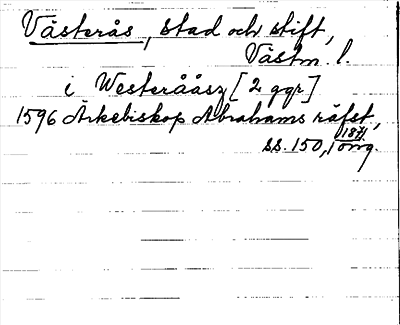 Västerås, stad och stift,
Västm. l.
i Westerååsz [2 ggr]
1596 Ärkebiskop Abrahams räfst,
ss. 150, 187. orig.